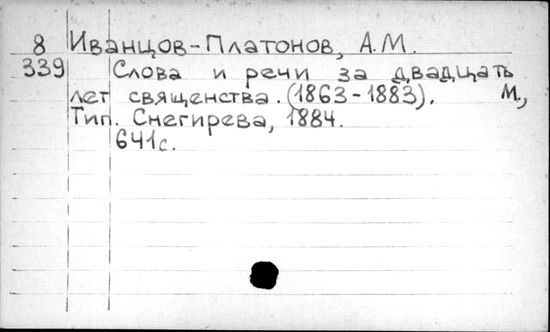 8 Иванцов-Платонов, А.М.
339 Слова и речи за двадцать
лет священства. (1863-1883). М.,
Тип. Снегирева, 1884.
641с.